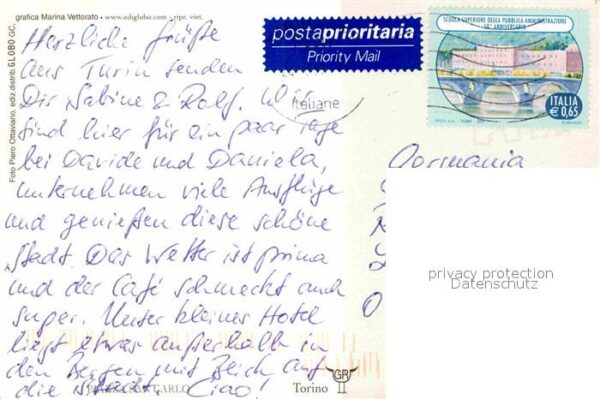 grafica Marina Vettorato • www.ediglobo.com - ripr. viet.
Foto Piero Ottaviano, ediz.distrib GLOBO GC,
Herzliche Grüße
aus Turin senden
Dir Sabine & Rolf. Wir
sind hier für ein paar Tage
bei Davide und Daniela,
unternehmen viele Ausflüge
und genießen diese schöne
Stadt. Das Wetter ist prima
und der Café schmeckt auch
super. Unser kleines Hotel
liegt etwas außerhalb in
den Bergen mit Blick auf
die Stadt. Ciao!
PIAZZA SAN CARLO
Torino
GR
postaprioritaria
Priority Mail
italiane
SCUOLA SUPERIORE DELLA PUBBLICA AMMINISTRAZIONE
50° ANNIVERSARIO
ITALIA
€ 0,65
Germania
privacy protection
Datenschutz